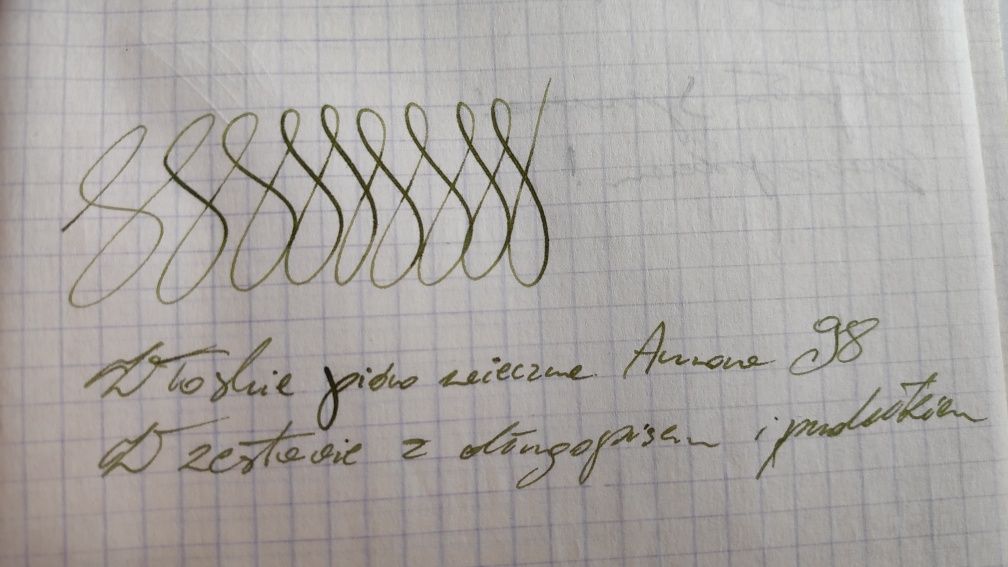 Włoskie pióro wieczne Aurora 98
W zestawie z długopisem i pudełkiem